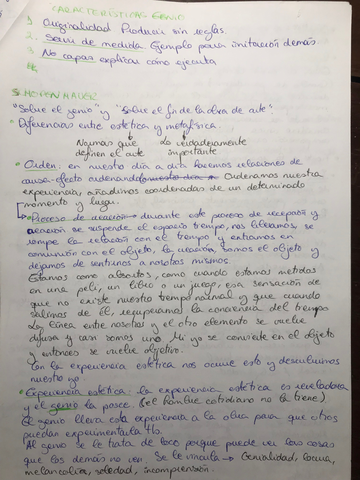 CARACTERÍSTICAS GENIO
1. Originalidad. Producir sin reglas.
2. Servir de medida. Ejemplo para imitación demás
3. No capaz explicar cómo ejecuta
SCHOPENHAUER
"Sobre el genio" y "Sobre el fin de la obra de arte"
Diferencias entre estética y metafísica.
Normas que definen el arte
Lo verdaderamente importante
Orden: en nuestro día a día hacemos relaciones de
causa-efecto ordenando Ordenamos nuestra
experiencia, añadimos coordenadas de un determinado
momento y lugar.
Proceso de creación → durante este proceso de recepción y
creación se suspende el espacio tiempo, nos liberamos, se
rompe la relación con el tiempo y entramos en
comunión con el objeto, la creación, somos el objeto y
dejamos de sentirnos a nosotros mismos.
Estamos como absortos, como cuando estamos metidos
en una peli, un libro o un juego, esa sensación de
que no existe nuestro tiempo normal y que cuando
salimos de él, recuperamos la conciencia del tiempo
La línea entre nosotros y el otro elemento se vuelve
difusa y casi somos uno. Mi yo se convierte en el objeto
y entonces se vuelve objetivo.
Con la experiencia estética nos ocurre esto y descubrimos
nuestro yo.
Experiencia estética: la experiencia estética es reveladora
y el genio la posee. (el hombre cotidiano no la tiene)
El genio lleva esta experiencia a la obra para que otros
puedan experimentarla
Al genio se le trata de loco porque puede ver las cosas
que los demás no ven. Se le vincula → Genialidad, locura,
melancolía, soledad, incomprensión.